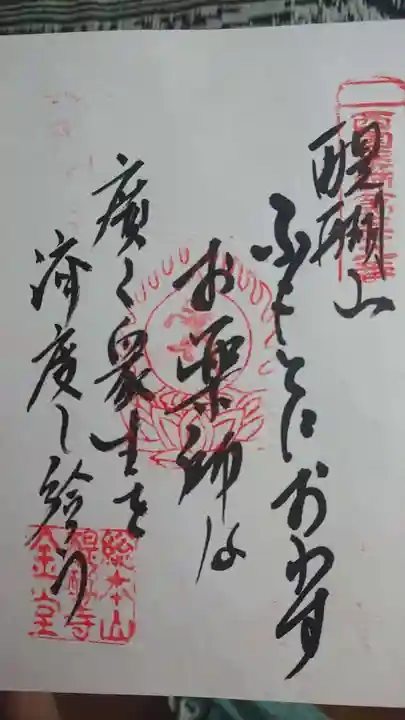 醍醐山
ふもとにおわす
お薬師は
廣く衆生を
済度し給う
総本山
醍醐寺
金堂